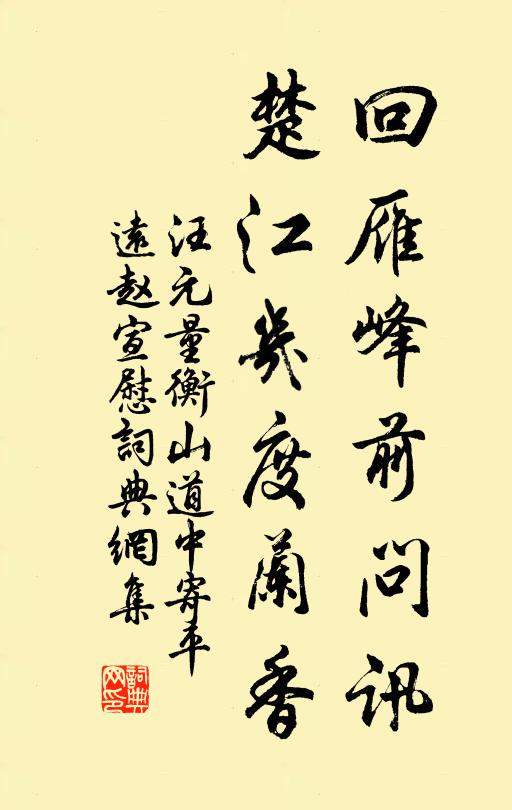 回雁峰前问讯
楚江几度兰香
汪元量衡山道中寄平
远赵宣慰词典网集
词典
网印